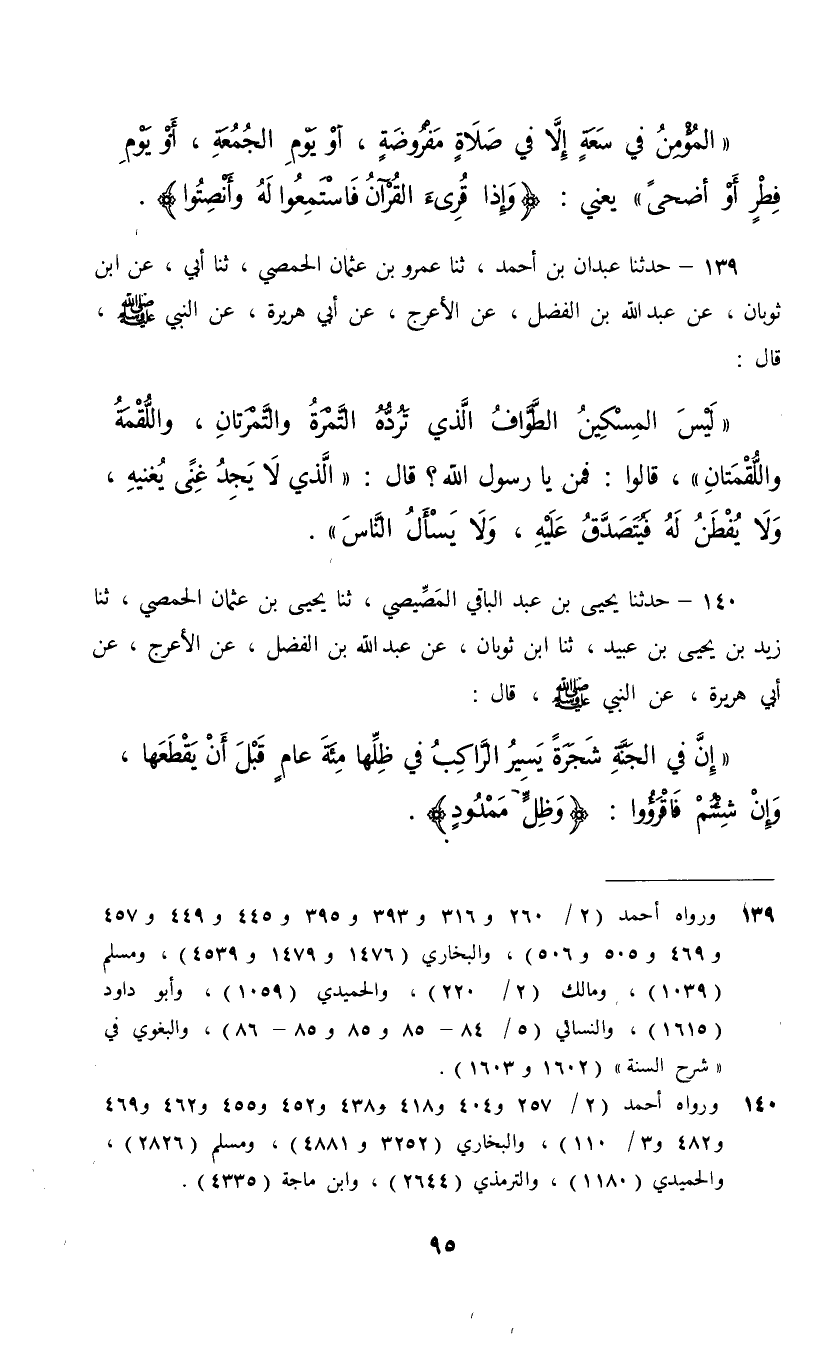 « المُؤْمِنُ في سَعَةٍ إِلَّا في صَلَاةٍ مَفْرُوضَةٍ ، أَوْ يَوْمِ الجُمُعَةِ ، أَوْ يَوْمِ
فِطْرٍ أَوْ أضحىً » يعني : ﴿وَإِذا قُرِىءَ القُرْآنُ فَاسْتَمِعُوا لَهُ وأَنْصِتُوا﴾ .
١٣٩ – حدثنا عبدان بن أحمد ، ثنا عمرو بن عثمان الحمصي ، ثنا أبي ، عن ابن
ثوبان ، عن عبد الله بن الفضل ، عن الأعرج ، عن أبي هريرة ، عن النبي ﷺ ،
قال :
« لَيْسَ المِسْكِينُ الطَّوَّافُ الَّذي تَرُدُّهُ التَّمْرَةُ والتَّمْرَتانِ ، واللُّقْمَةُ
واللُّقْمَتانِ » ، قالوا : فمن يا رسول الله ؟ قال : « الَّذي لَا يَجِدُ غِنًى يُغنيهِ ،
وَلَا يُفْطَنُ لَهُ فَيُتَصَدَّقُ عَلَيْهِ ، وَلَا يَسْأَلُ النَّاسَ » .
١٤٠ – حدثنا يحيى بن عبد الباقي المَصِّيصي ، ثنا يحيى بن عثمان الحمصي ، ثنا
زيد بن يحيى بن عبيد ، ثنا ابن ثوبان ، عن عبد الله بن الفضل ، عن الأعرج ، عن
أبي هريرة ، عن النبي ﷺ ، قال :
« إِنَّ في الجنَّةِ شَجَرَةً يَسِيرُ الرَّاكِبُ في ظِلِّها مِئَةَ عامٍ قَبْلَ أَنْ يَقْطَعَها ،
وَإِنْ شِئْتُمْ فَاقْرَؤُوا : ﴿وَظِلٍّ مَمْدُودٍ﴾ .
١٣٩ ورواه أحمد ( ٢ / ٢٦٠ و ٣١٦ و ٣٩٣ و ٣٩٥ و ٤٤٥ و ٤٤٩ و ٤٥٧
و ٤٦٩ و ٥٠٥ و ٥٠٦ ) ، والبخاري ( ١٤٧٦ و ١٤٧٩ و ٤٥٣٩ ) ، ومسلم
( ١٠٣٩ ) ، ومالك ( ٢ / ٢٢٠ ) ، والحميدي ( ١٠٥٩ ) ، وأبو داود
( ١٦١٥ ) ، والنسائي ( ٥ / ٨٤ – ٨٥ و ٨٥ و ٨٥ – ٨٦ ) ، والبغوي في
« شرح السنة » ( ١٦٠٢ و ١٦٠٣ ) .
١٤٠ ورواه أحمد ( ٢ / ٢٥٧ و٤٠٤ و٤١٨ و٤٣٨ و٤٥٢ و٤٥٥ و٤٦٢ و٤٦٩
و٤٨٢ و٣ / ١١٠ ) ، والبخاري ( ٣٢٥٢ و ٤٨٨١ ) ، ومسلم ( ٢٨٢٦ ) ،
والحميدي ( ١١٨٠ ) ، والترمذي ( ٢٦٤٤ ) ، وابن ماجة ( ٤٣٣٥ ) .
٩٥